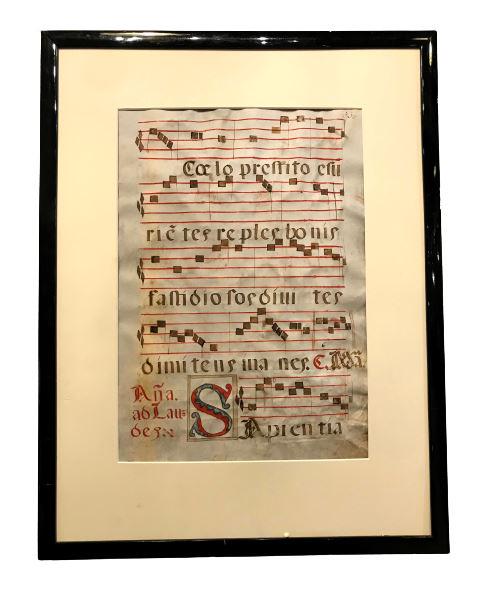 Cœlo prestito esu
riẽ tes re ples bo nis
fastidiosos divi tes
dimitens ina nes.
Aña.
ad Lau-
des
Sapientia